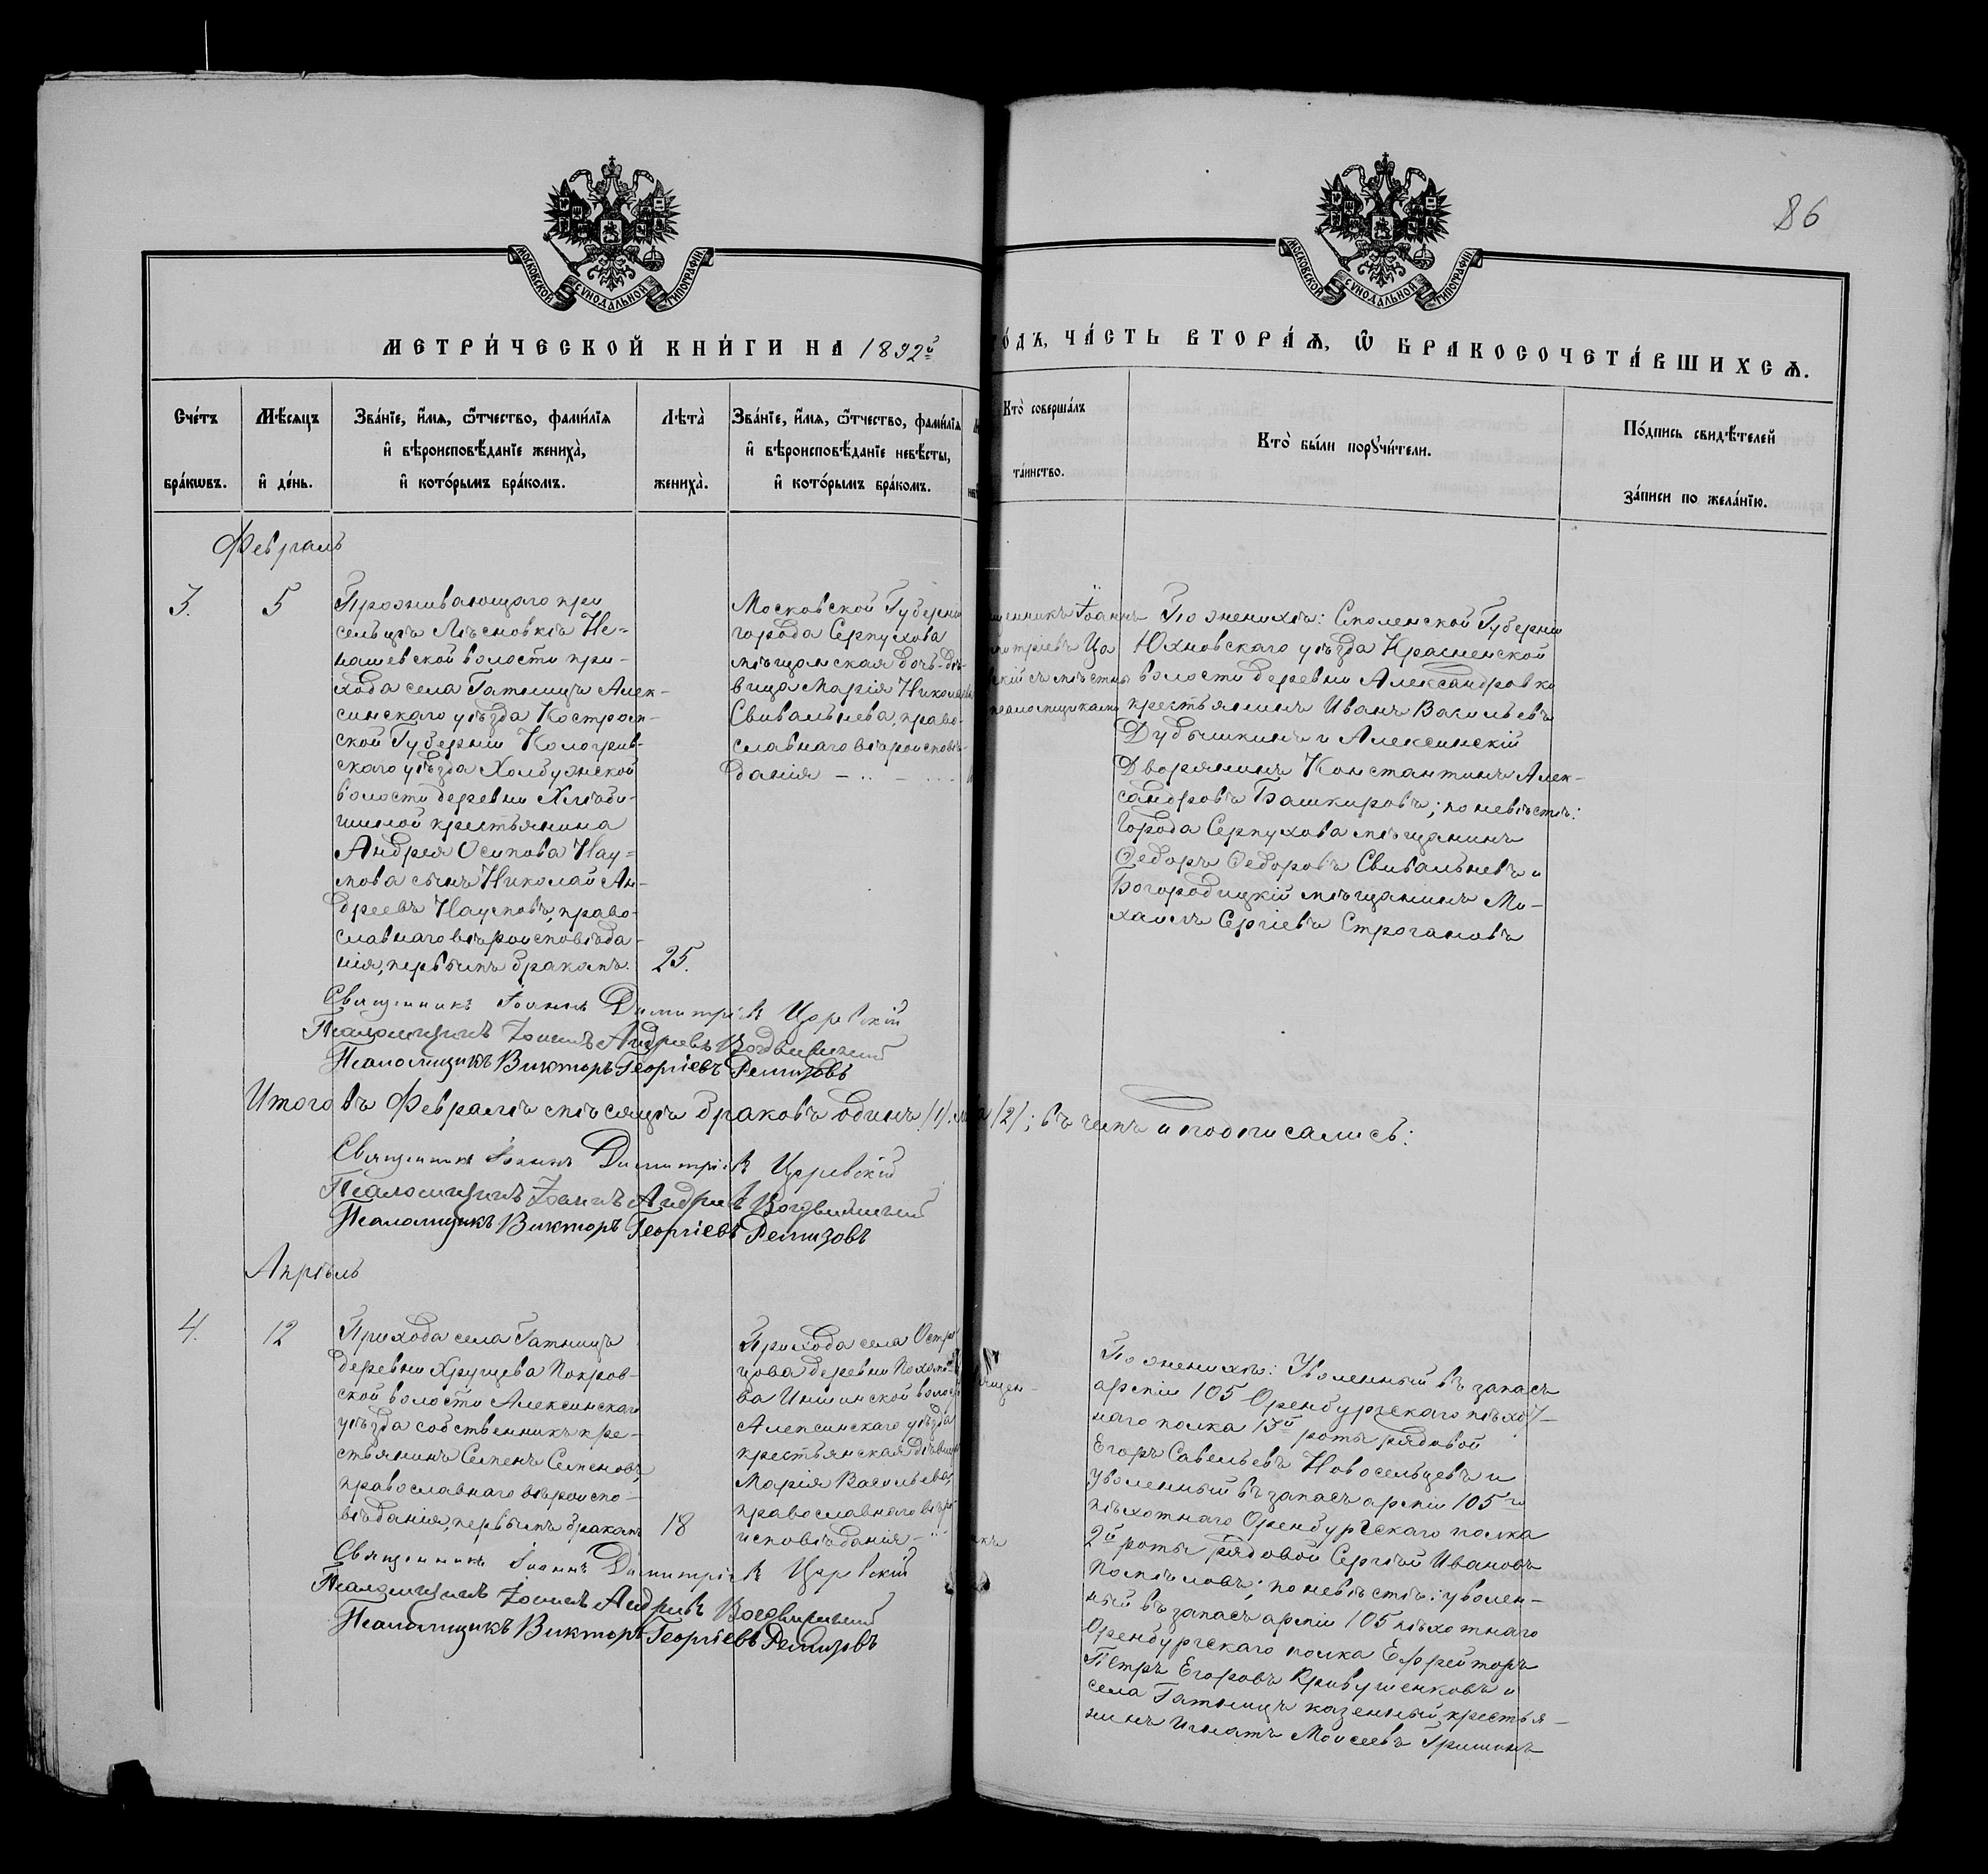 86
МОСКОВСКОЙ СѴНОДАЛЬНОЙ ТИПОГРАФІИ.
МОСКОВСКОЙ СѴНОДАЛЬНОЙ ТИПОГРАФІИ.
МЕТРИ́ЧЕСКОЙ КНИ́ГИ НА 1892й
ГО́ДЪ, ЧА́СТЬ ВТОРА́Ѧ, Ѡ БРАКОСОЧЕТА́ВШИХСѦ.
Сче́тъ
бра́кѡвъ.
Мѣ́сяцъ
и҆ де́нь.
Зва́нїе, и҆́мя, ѻ҆́тчество, фами́лїя
и҆ вѣроисповѣ́данїе жениха̀,
и҆ кото́рымъ бра́комъ.
Лѣта̀
жениха̀.
Зва́нїе, и҆́мя, ѻ҆́тчество, фами́лїя
и҆ вѣроисповѣ́данїе невѣ́сты,
и҆ кото́рымъ бра́комъ.
Кто̀ соверша́лъ
та́инство.
Кто̀ бы́ли порꙋчи́тели.
По́дпись свидѣ́телей
за́писи по жела́нїю.
Февраль
3.
5
Проживающаго при
сельцѣ Лѣсновкѣ Не=
нашевской волости при-
хода села Гатницъ Алек-
синскаго уѣзда Костром-
ской Губерніи Кологрив-
скаго уѣзда Холбужской
волости деревни Хлѣби-
шиной крестьянина
Андрея Осипова Нау=
мова сынъ Николай Ан-
дреевъ Наумовъ, право-
славнаго вѣроисповѣда-
нія, первымъ бракомъ.
25.
Московской Губерніи
города Серпухова
мѣщанская дочь-дѣ-
вица Марія Никола
Свивальнева, право-
славнаго вѣроисповѣ-
данія
щенникъ Іоаннъ
митріевъ Ца
скій съ мѣстны
псаломщиками
По женихѣ: Смоленской Губерніи
Юхновскаго уѣзда Красненской
волости деревни Александровки
крестьянинъ Иванъ Васильевъ
Дубышкинъ и Алексинскій
Дворянинъ Константинъ Алек-
сандровъ Башкировъ; по невѣстѣ:
города Серпухова мѣщанинъ
Ѳедоръ Ѳедоровъ Свивальневъ и
Богородицкій мѣщанинъ Ми-
хаилъ Сергіевъ Строгановъ
Священникъ Іоаннъ Димитріевъ Царевскій
Псаломщикъ Іоаннъ Андреевъ Воздвиженскій
Псаломщикъ Викторъ Георгіевъ Ремизовъ
Итого въ Февралѣ мѣсяцѣ браковъ одинъ /1/. на /2/; въ чемъ и подписались:
Священникъ Іоаннъ Димитріевъ Царевскій
Псаломщикъ Іоаннъ Андреевъ Воздвиженскій
Псаломщикъ Викторъ Георгіевъ Ремизовъ
Апрѣль
4.
12
Прихода села Гатницъ
деревни Хрущева Покров-
ской волости Алексинскаго
уѣзда собственникъ кре-
стьянинъ Семенъ Семеновъ,
православнаго вѣроиспо-
вѣданія, первымъ бракомъ
18
Прихода села Остре
цова деревни
ва Иншинской волост
Алексинскаго уѣзда
крестьянская дѣвица
Марія Васильева,
православнаго вѣро
исповѣданія
По женихѣ: Уволенный въ запасъ
арміи 105 Оренбургскаго пѣхот-
наго полка 13й роты рядовой
Егоръ Савельевъ Новосельцевъ и
уволенный въ запасъ арміи 105го
пѣхотнаго Оренбургскаго полка
2й роты рядовой Сергѣй Ивановъ
по невѣстѣ: уволен-
ный въ запасъ арміи 105 пѣхотнаго
Оренбургскаго полка Ефрейторъ
Петръ Егоровъ Кривушенковъ и
села Гатницъ казенный крестья-
нинъ Игнатъ Моисеевъ Гришинъ
Священникъ Іоаннъ Димитріевъ Царевскій
Псаломщикъ Іоаннъ Андреевъ Воздвиженскій
Псаломщикъ Викторъ Георгіевъ Ремизовъ